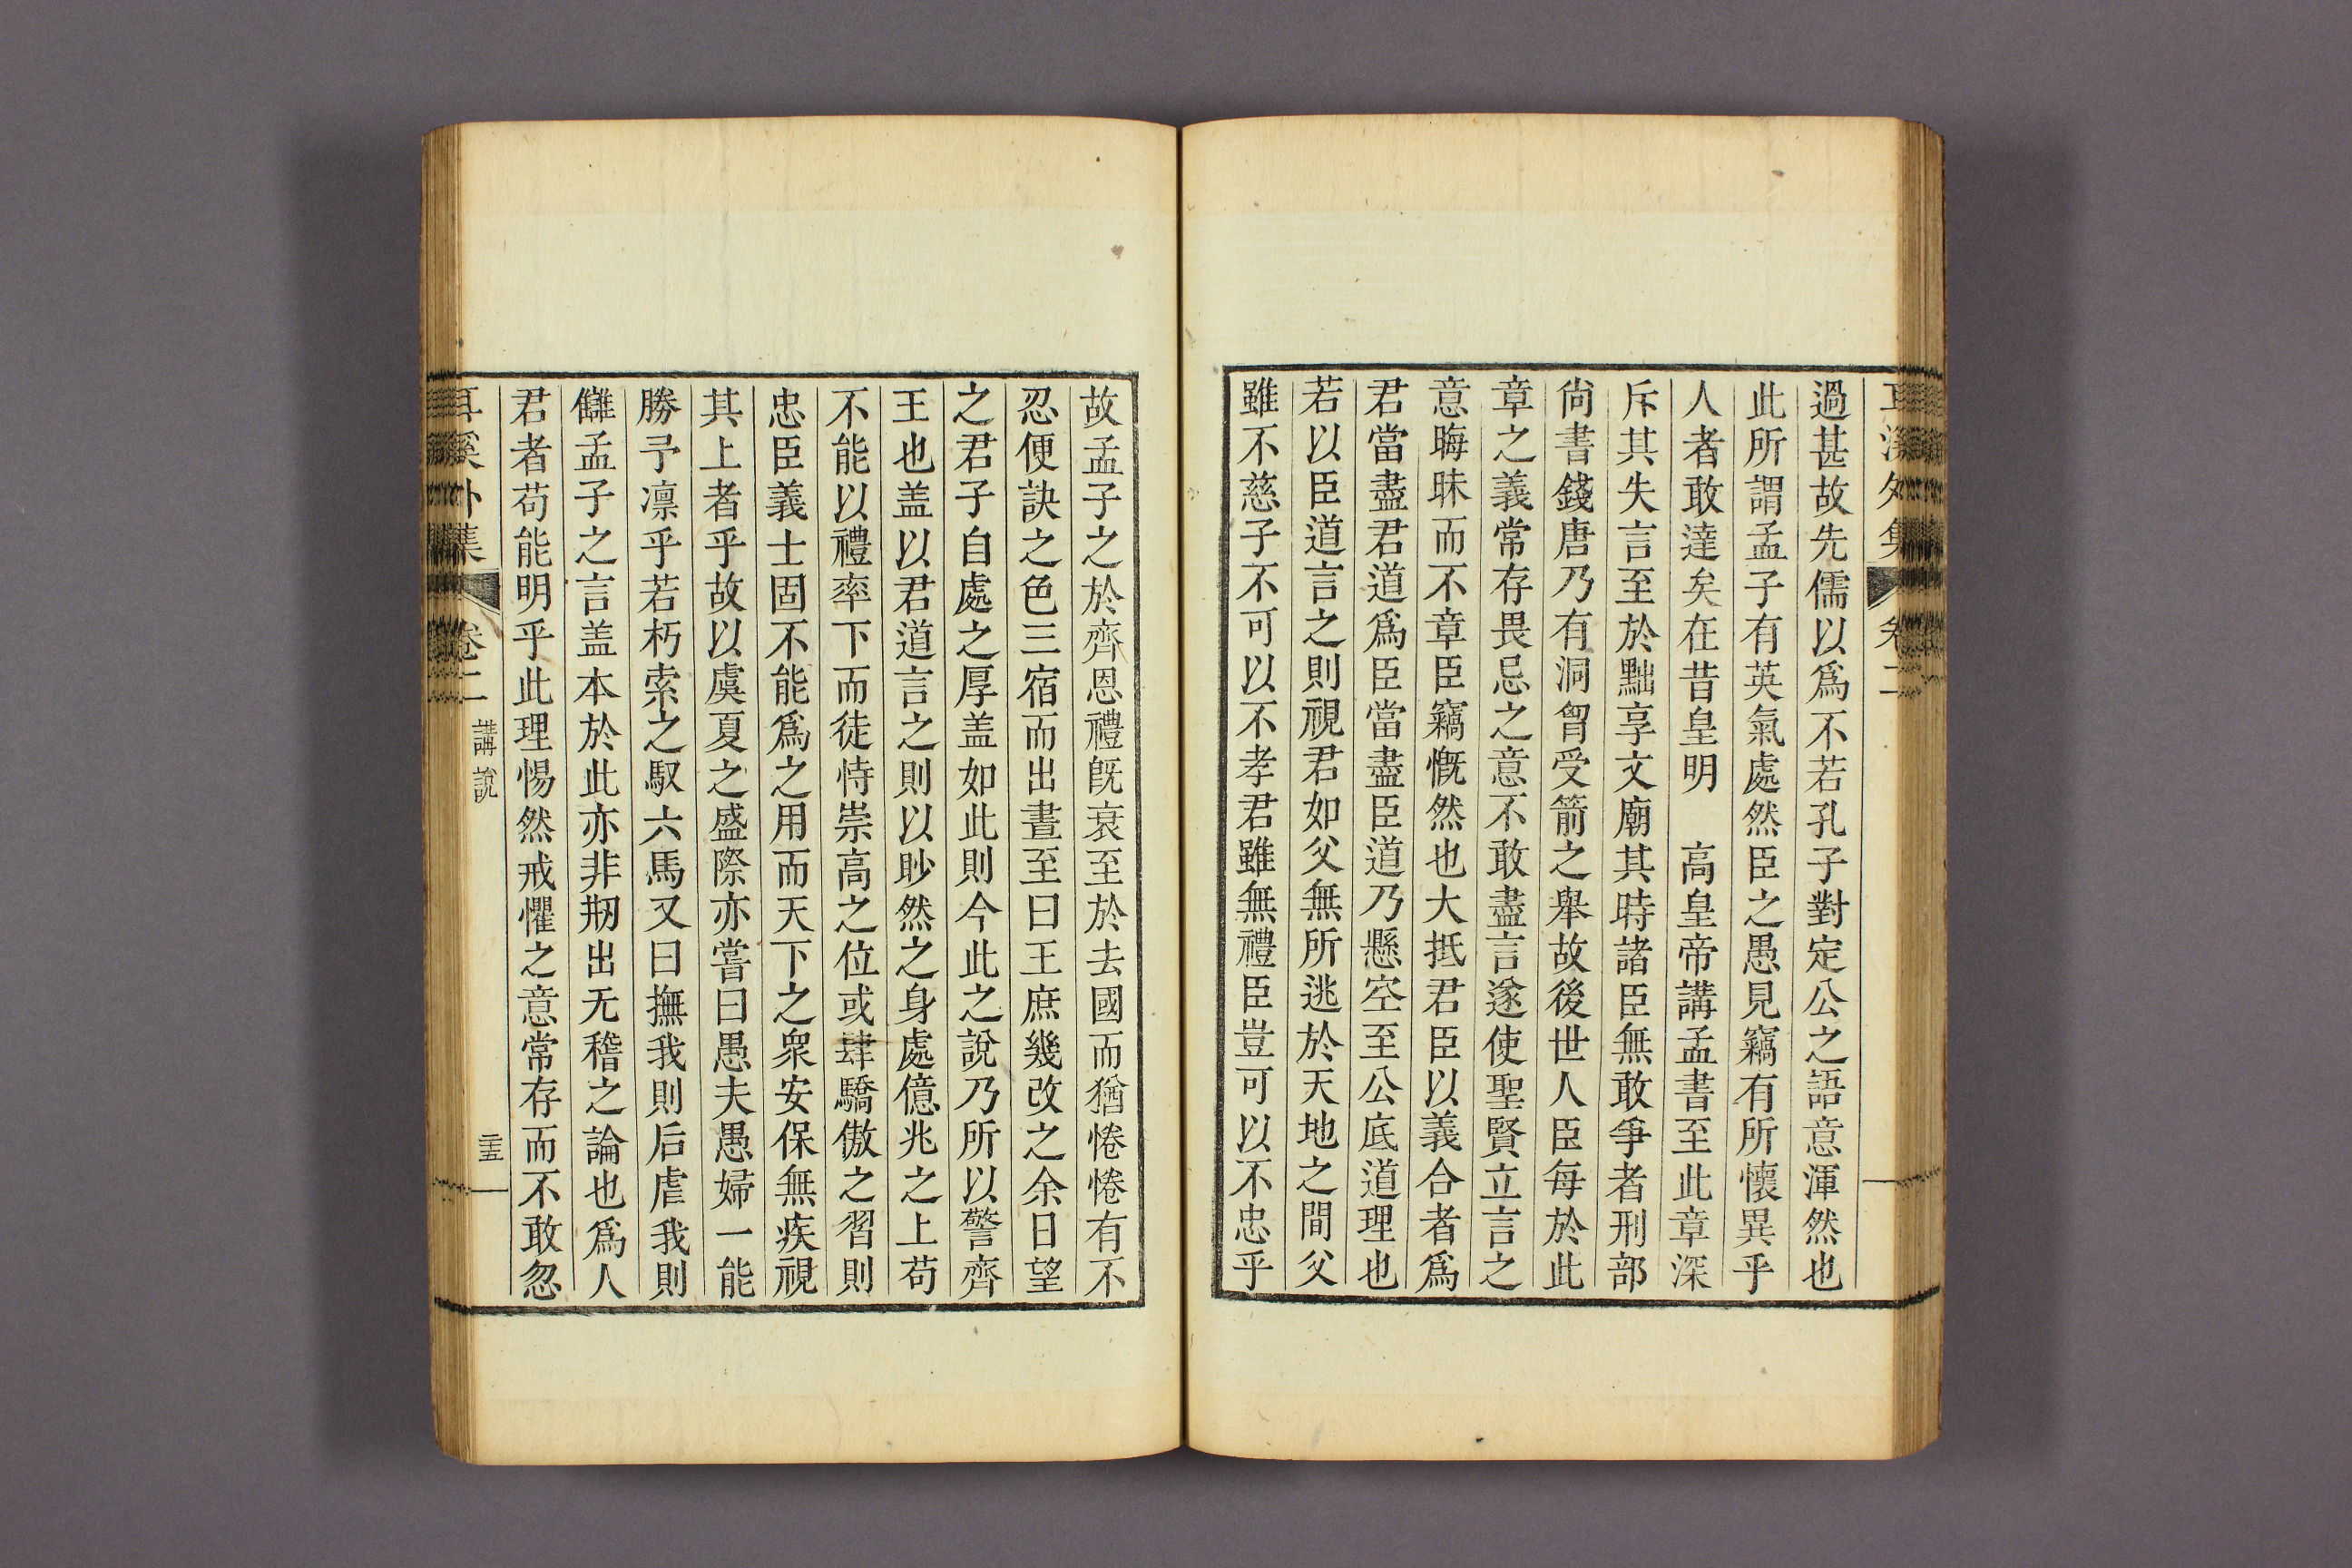 耳溪外集 卷二
過甚故先儒以爲不若孔子對定公之語意渾然也
此所謂孟子有英氣處然臣之愚見竊有所懷異乎
人者敢達矣在昔皇明 高皇帝講孟書至此章深
斥其失言至於黜享文廟其時諸臣無敢爭者刑部
尙書錢唐乃有洞胷受箭之舉故後世人臣每於此
章之義常存畏忌之意不敢盡言遂使聖賢立言之
意晦昧而不章臣竊慨然也大抵君臣以義合者爲
君當盡君道爲臣當盡臣道乃懸空至公底道理也
若以臣道言之則視君如父無所逃於天地之間父
雖不慈子不可以不孝君雖無禮臣豈可以不忠乎
故孟子之於齊恩禮旣衰至於去國而猶惓惓有不
忍便訣之色三宿而出晝至曰王庶幾改之余日望
之君子自處之厚盖如此則今此之說乃所以警齊
王也盖以君道言之則以眇然之身處億兆之上苟
不能以禮率下而徒恃崇高之位或肆驕傲之習則
忠臣義士固不能爲之用而天下之衆安保無疾視
其上者乎故以虞夏之盛際亦嘗曰愚夫愚婦一能
勝予凛乎若朽索之馭六馬又曰撫我則后虐我則
讎孟子之言盖本於此亦非刱出无稽之論也爲人
君者苟能明乎此理惕然戒懼之意常存而不敢忽
耳溪外集 卷二 講說 二十五